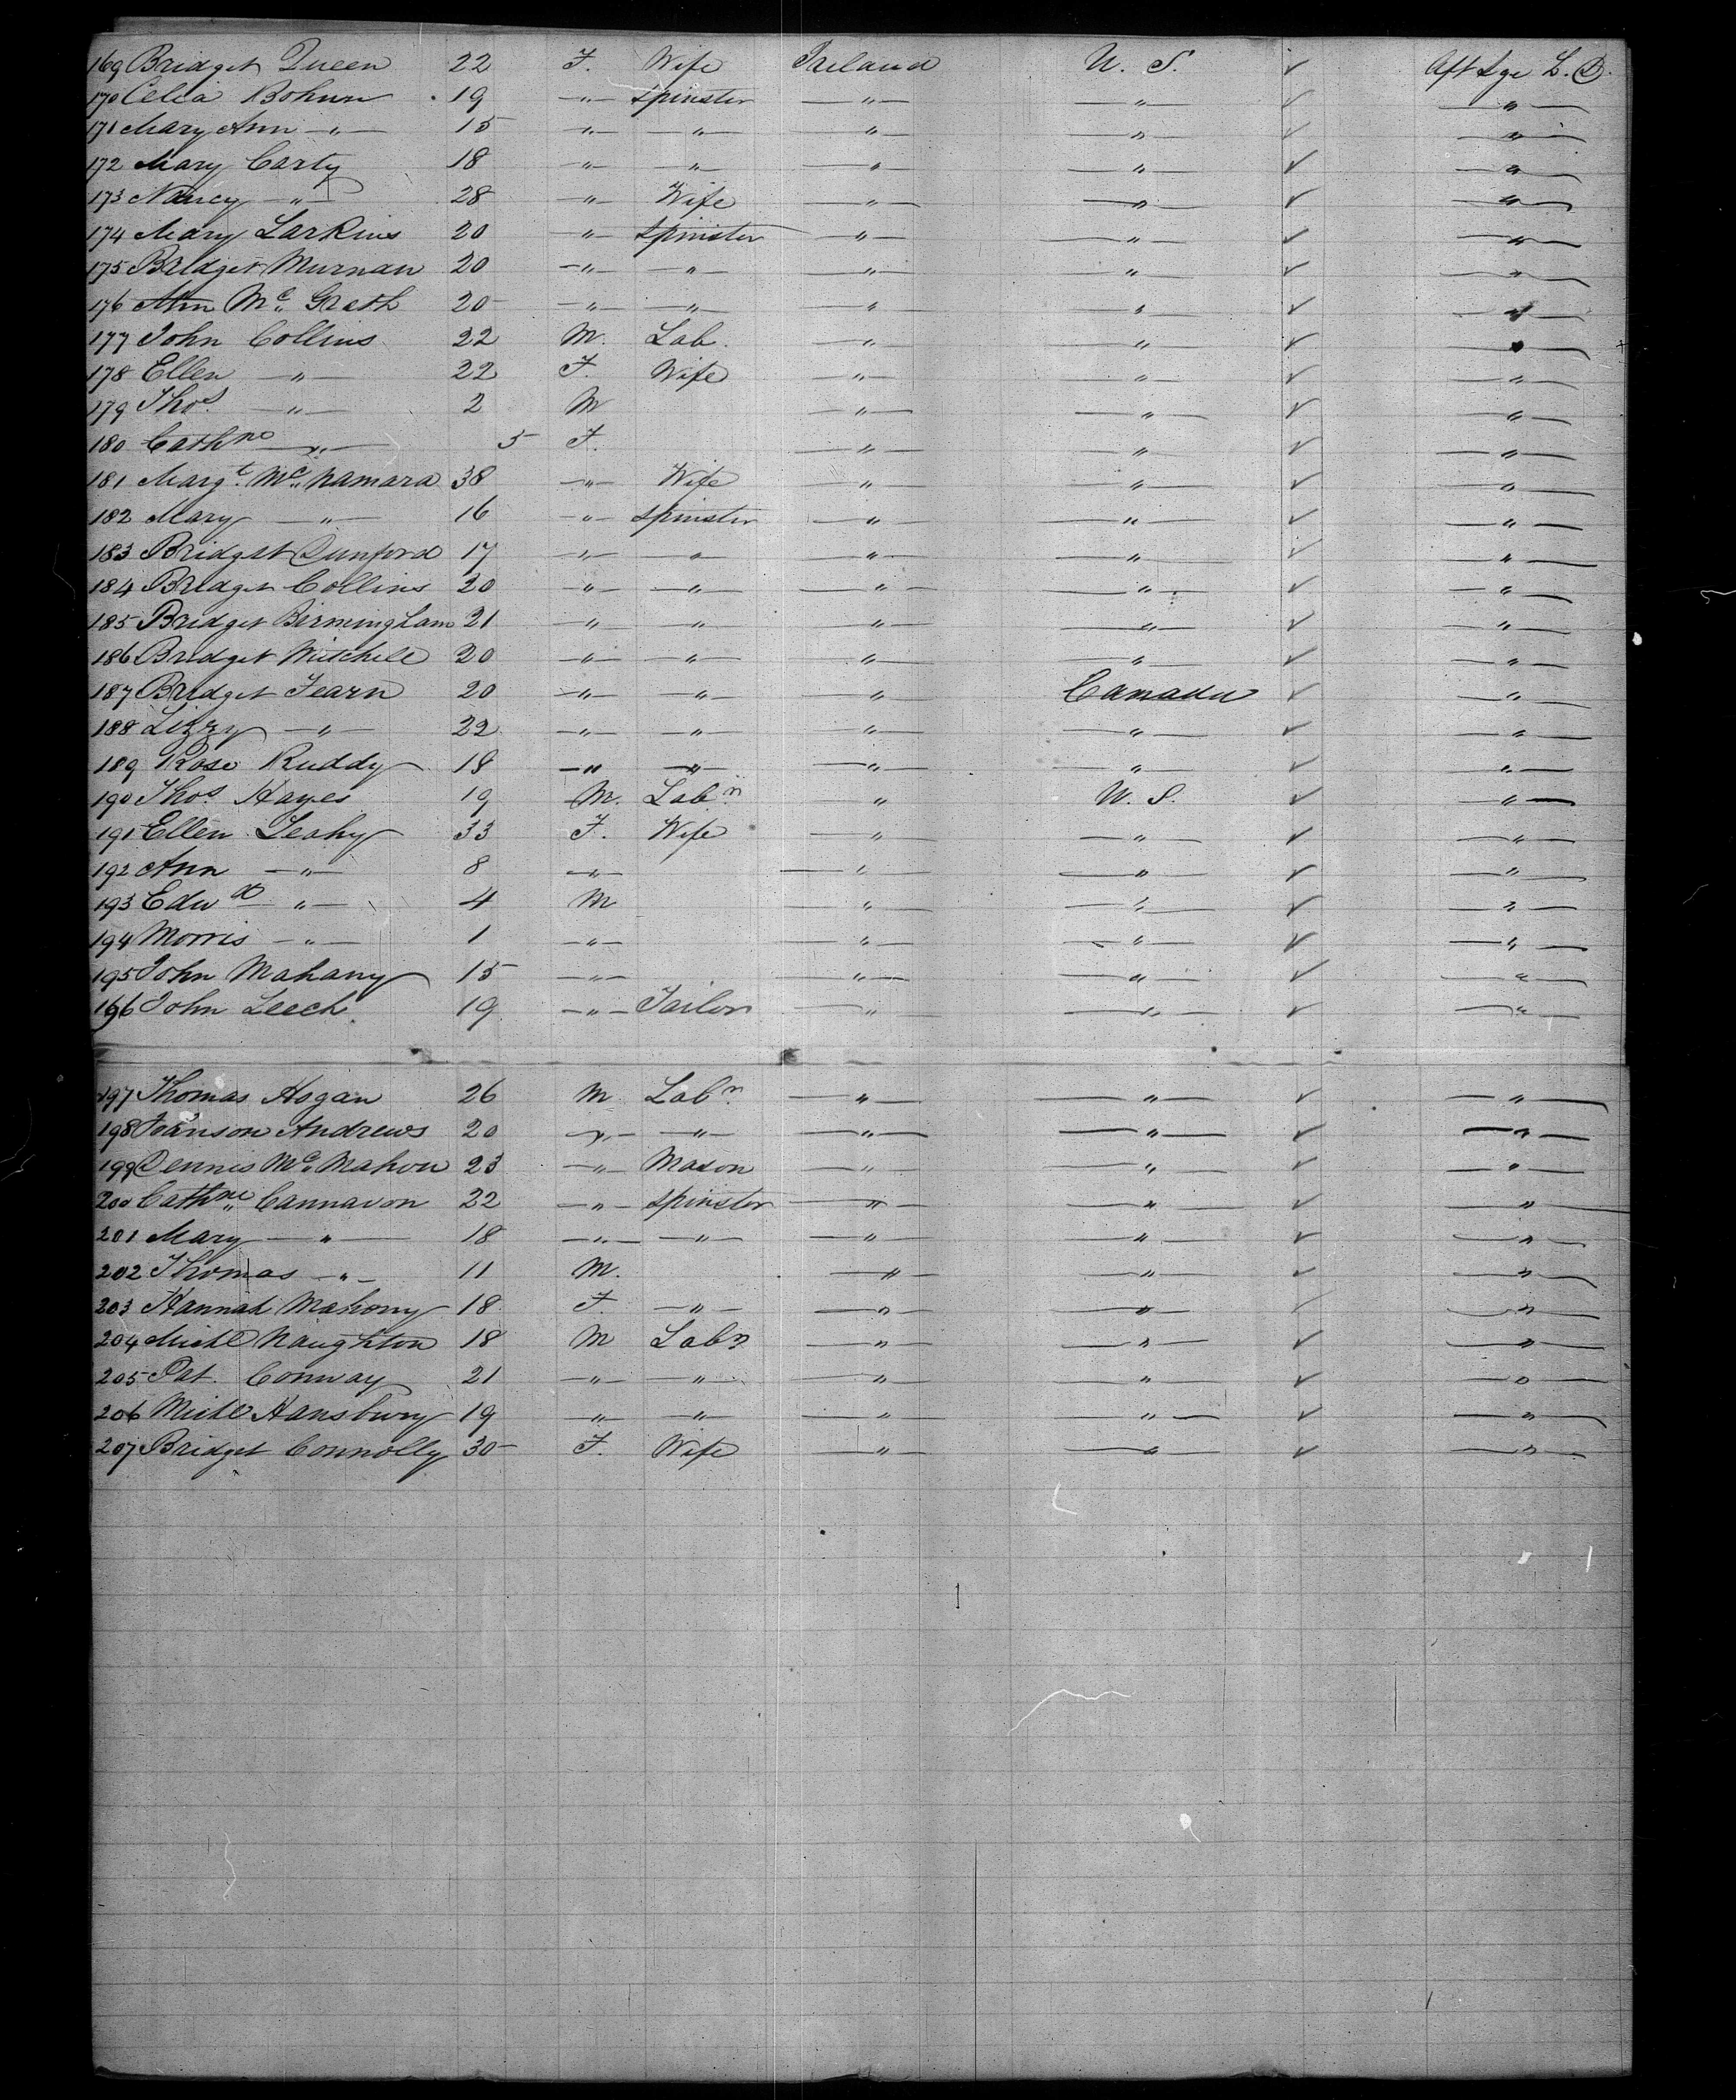 169 Bridget Queen 22 F. Wife Ireland U. S. ✓ Aft Stge L. D.
170 Celia Bohun 19 —"— Spinster —"— —"— ✓ —"—
171 Mary Ann —"— 15 —"— —"— —"— —"— ✓ —"—
172 Mary Carty 18 —"— —"— —"— —"— ✓ —"—
173 Nancy —"— 28 —"— Wife —"— —"— ✓ —"—
174 Mary Larkins 20 —"— Spinster —"— —"— ✓ —"—
175 Bridget Murnan 20 —"— —"— —"— —"— ✓ —"—
176 Ann Mc Grath 20 —"— —"— —"— —"— ✓ —"—
177 John Collins 22 M. Lab. —"— —"— ✓ —"—
178 Ellen —"— 22 F. Wife —"— —"— ✓ —"—
179 Thos. —"— 2 M —"— —"— ✓ —"—
180 Cathne —"— 5 F. —"— —"— ✓ —"—
181 Margt. Mc Namara 38 —"— Wife —"— —"— ✓ —"—
182 Mary —"— 16 —"— Spinster —"— —"— ✓ —"—
183 Bridget Dunford 17 —"— —"— —"— —"— ✓ —"—
184 Bridget Collins 20 —"— —"— —"— —"— ✓ —"—
185 Bridget Birmingham 21 —"— —"— —"— —"— ✓ —"—
186 Bridget Mitchell 20 —"— —"— —"— —"— ✓ —"—
187 Bridget Fearn 20 —"— —"— —"— Canada ✓ —"—
188 Lizzy —"— 22 —"— —"— —"— —"— ✓ —"—
189 Rose Ruddy 18 —"— —"— —"— —"— ✓ —"—
190 Thos. Hayes 19 M. Labr. " U. S. ✓ —"—
191 Ellen Leahy 33 F. Wife —"— —"— ✓ —"—
192 Ann —"— 8 —"— —"— —"— ✓ —"—
193 Edwd —"— 4 M —"— —"— ✓ —"—
194 Morris —"— 1 —"— —"— —"— ✓ —"—
195 John Mahany 15 —"— —"— —"— ✓ —"—
196 John Leech 19 —"— Tailor —"— —"— ✓ —"—
197 Thomas Hogan 26 M Labr. —"— —"— ✓ —"—
198 Andrews 20 —"— —"— —"— —"— ✓ —"—
199 Dennis Mc Mahon 23 —"— Mason —"— —"— ✓ —"—
200 Cathne Cannavon 22 —"— Spinster —"— —"— ✓ —"—
201 Mary —"— 18 —"— —"— —"— —"— ✓ —"—
202 Thomas —"— 11 M. —"— —"— ✓ —"—
203 Hannah Mahony 18 F. —"— —"— —"— ✓ —"—
204 Michl Naughton 18 M Labr —"— —"— ✓ —"—
205 Pat. Conway 21 —"— —"— —"— —"— ✓ —"—
206 Michl Hansbury 19 —"— —"— —"— —"— ✓ —"—
207 Bridget Connolly 30 F. Wife —"— —"— ✓ —"—